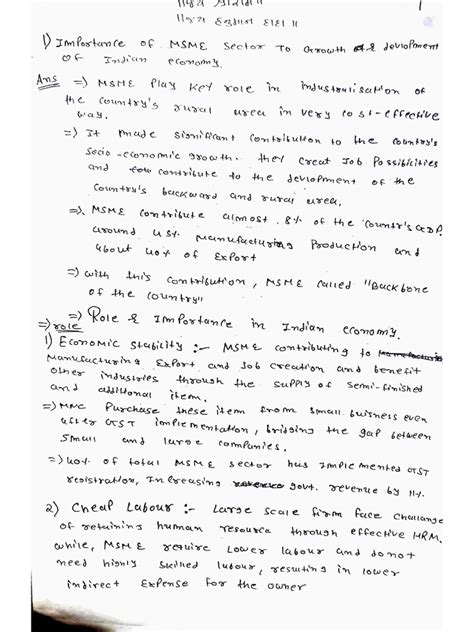 ॥ જય શ્રીરામ ॥
1
॥ જય હનુમાન દાદા ॥
1) Importance of MSME Sector To Growth & devlopment
of Indian economy.
Ans => MSME Play Key role in industralisation of
the country's rural urea in very cost-effective
way.
=> It made significant contribution to the country's
Socio-economic growth. they creat Job Possibicities
and contribute to the devlopment of the
Country's backward and rural urea.
=> MSME contribute almost 8% of the Countr's GDP,
around 45% manufacturing Production and
about 40% of Export
=> with this contribution, MSME called "Backbone
of the country"
=> Role & Importance in Indian economy.
=> role
1) Economic Stability :- MSME contributing to
Manufacturing Export and Job creation and benefit
other industries through the supply of semi-finished
and additional item.
=> MNC Purchase these item from small buisness even
after GST implementation, bridging the gap between
Small and large companies.
=> 40% of total MSME sector has Implemented GST
registration, Increasing govt. revenue by 11%.
2) Cheap Labour :- Large scale firm face challange
of retaining human resource through effective HRM.
while, MSME require Lower labour and donot
need highly skilled labour, resulting in lower
indirect Expense for the owner